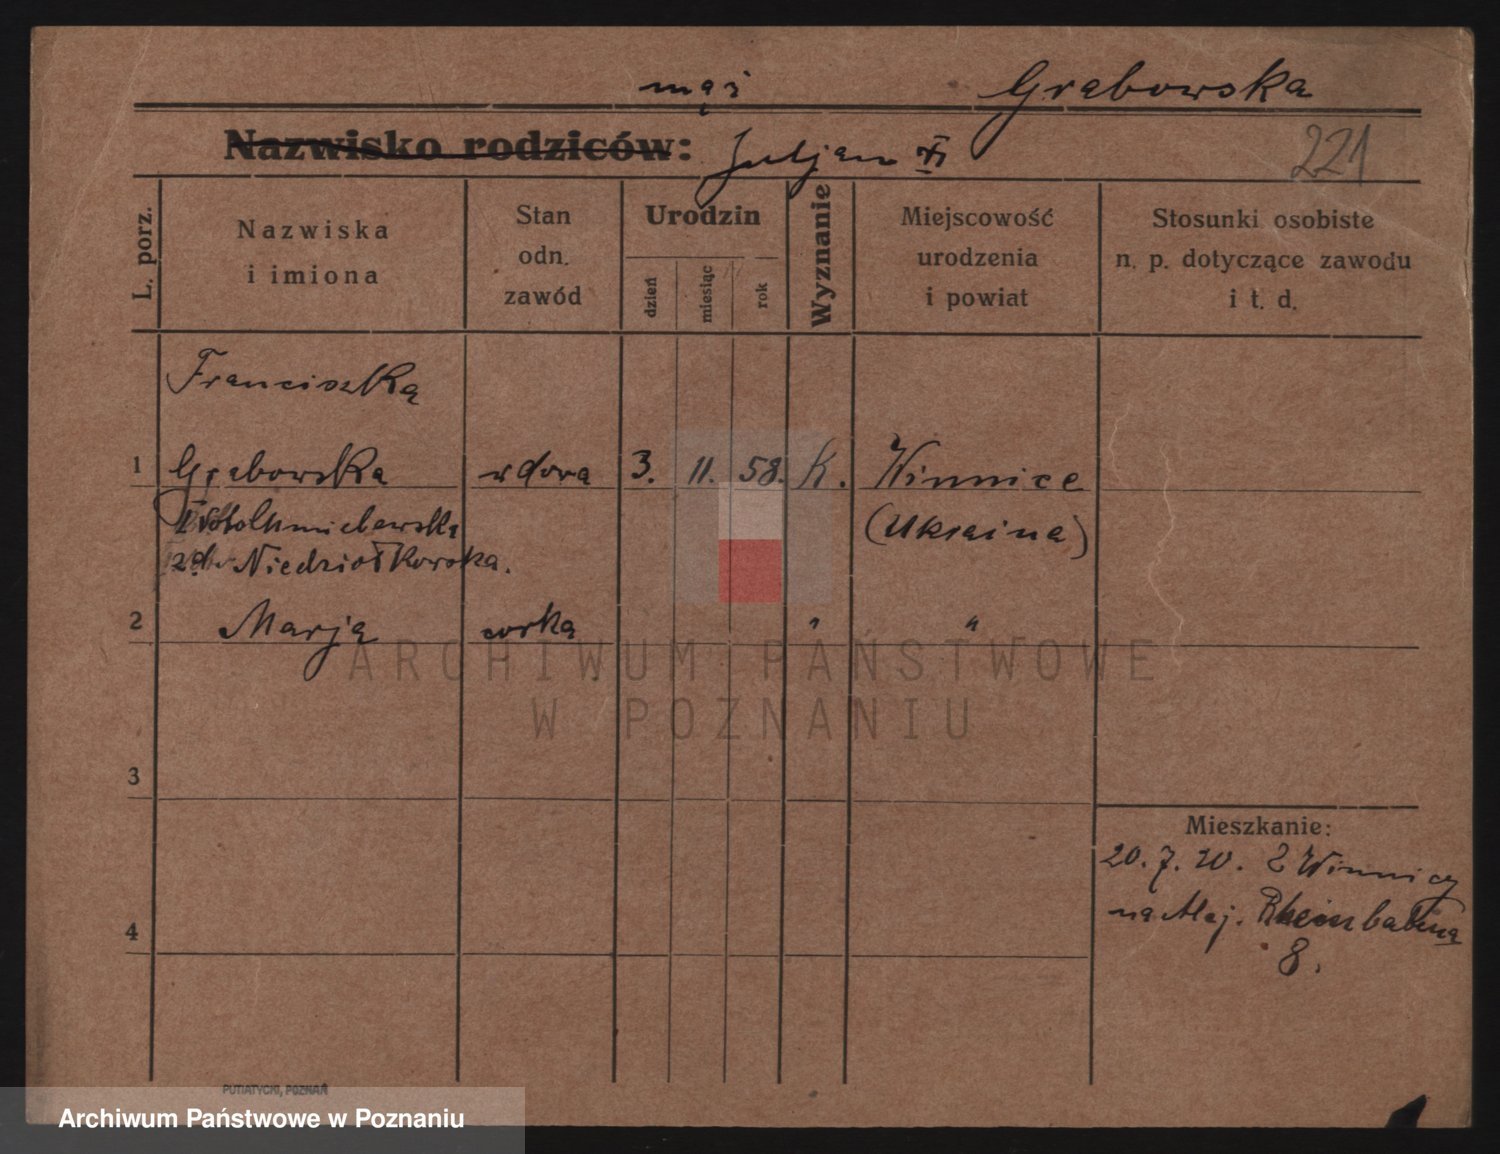 mąż Grabowska
Nazwisko rodziców: Juljan
221
L. porz.
Nazwiska
i imiona
Stan
odn.
zawód
Urodzin
dzień
miesiąc
rok
Wyznanie
Miejscowość
urodzenia
i powiat
Stosunki osobiste
n. p. dotyczące zawodu
i t. d.
Franciszka
1 Grabowska wdowa 3. 11. 58. K. Winnice
(Ukraina)
Niedziołkowska.
2 Marja corka " "
3
Mieszkanie:
20. 7. 20. Z Winnicy
na Maj.
8.
4
ARCHIWUM PAŃSTWOWE
W POZNANIU
PUTIATYCKI, POZNAŃ
Archiwum Państwowe w Poznaniu